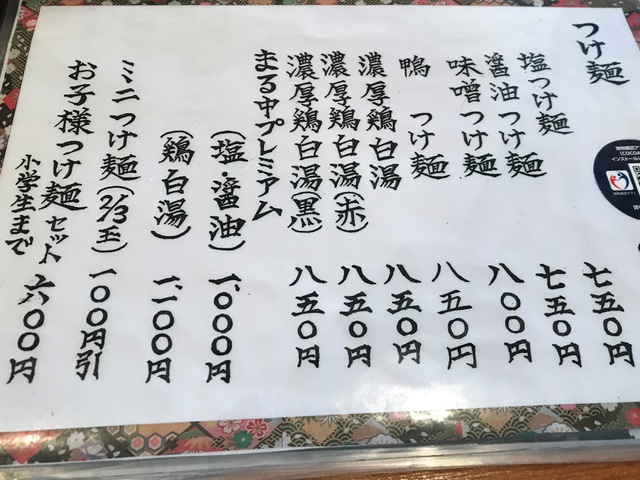 つけ麺
塩つけ麺 七五〇円
醤油つけ麺 七五〇円
味噌つけ麺 八〇〇円
鴨 つけ麺 八五〇円
濃厚鶏白湯 八五〇円
濃厚鶏白湯(赤) 八五〇円
濃厚鶏白湯(黒) 八五〇円
まる中プレミアム
(塩・醤油) 一、〇〇〇円
(鶏白湯) 一、一〇〇円
ミニつけ麺(2/3玉) 一〇〇円引
お子様つけ麺セット 六〇〇円
小学生まで